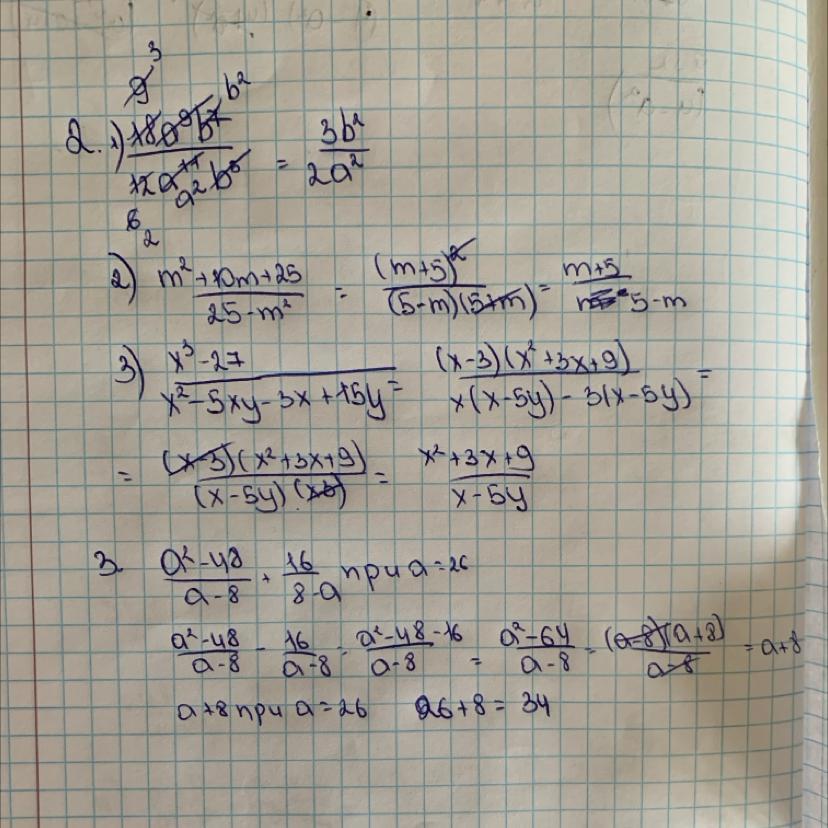 3
9 b²
2. 1) 18a⁹b⁷ / 12a¹¹b⁵ = 3b² / 2a²
a²
6
2
2) m²+10m+25 / 25-m² = (m+5)² / (5-m)(5+m) = m+5 / 5-m
3) x³-27 / x²-5xy-3x+15y = (x-3)(x²+3x+9) / x(x-5y)-3(x-5y) =
= (x-3)(x²+3x+9) / (x-5y)(x-3) = x²+3x+9 / x-5y
3. a²-48 / a-8 + 16 / 8-a при a=26
a²-48 / a-8 - 16 / a-8 = a²-48-16 / a-8 = a²-64 / a-8 = (a-8)(a+8) / a-8 = a+8
a+8 при a=26 26+8=34